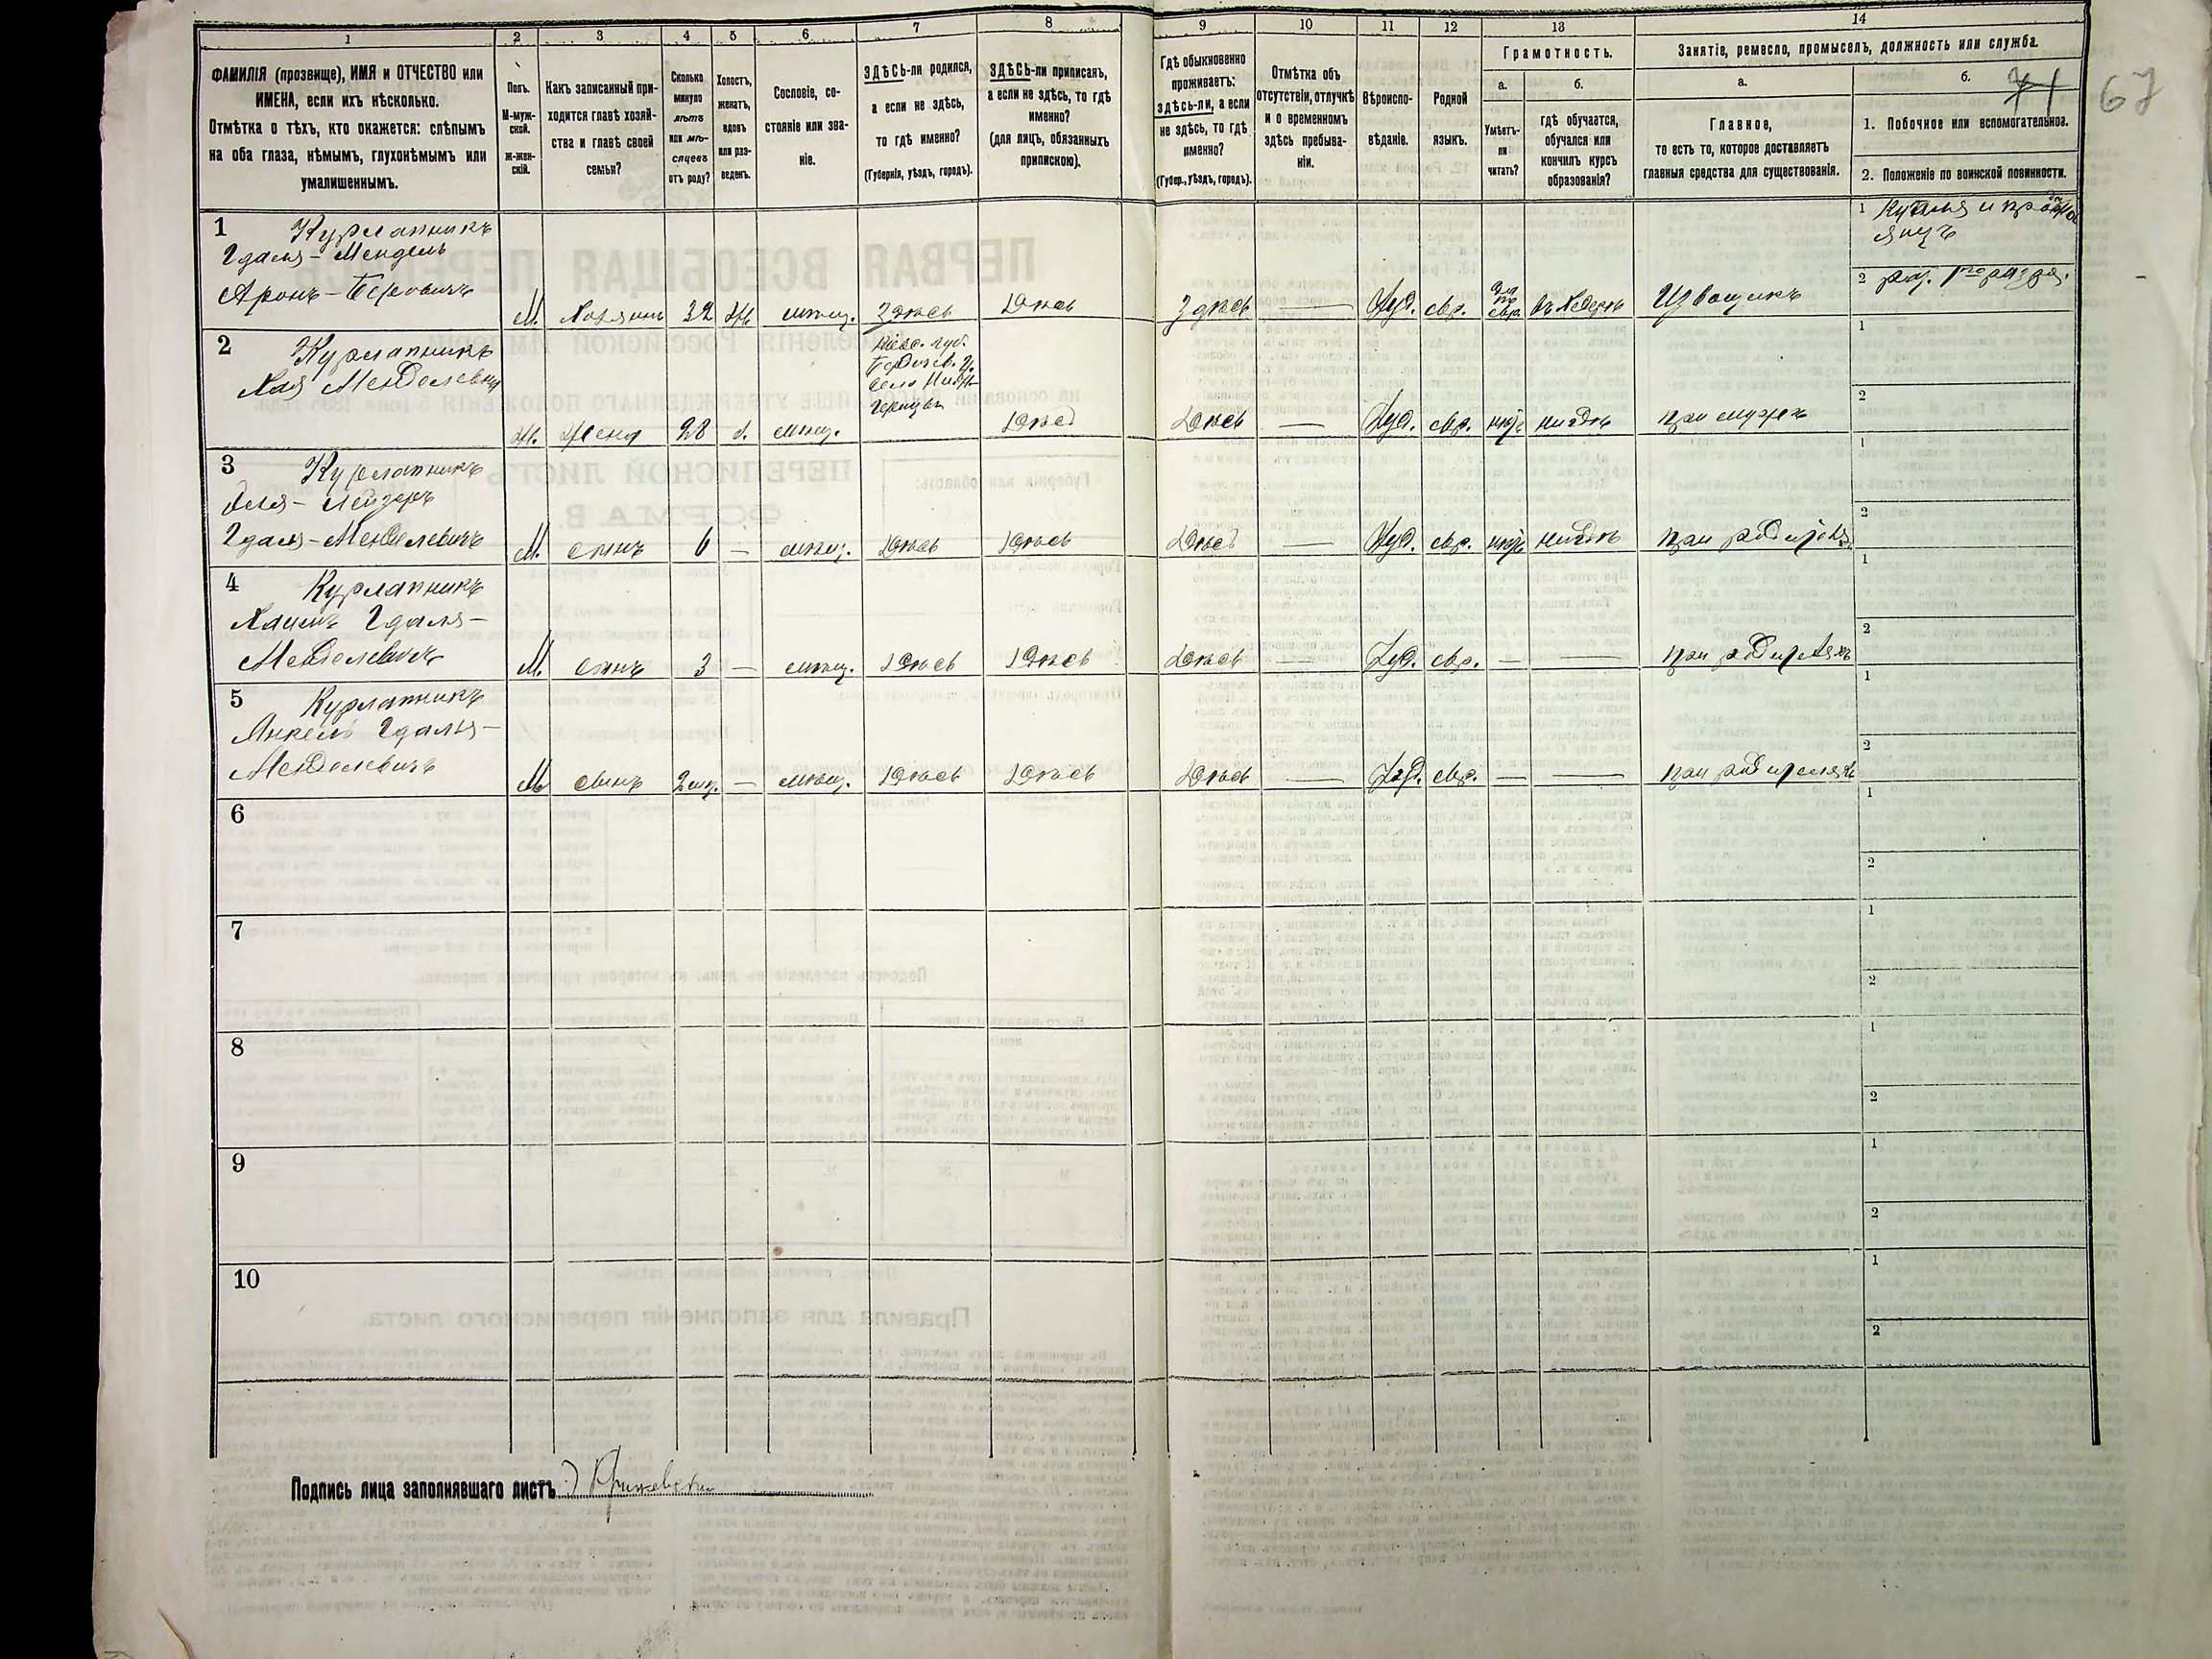 1
2
3
4
5
6
7
8
9
10
11
12
13
14
ФАМИЛІЯ (прозвище), ИМЯ и ОТЧЕСТВО или
ИМЕНА, если ихъ нѣсколько.
Отмѣтка о тѣхъ, кто окажется: слѣпымъ
на оба глаза, нѣмымъ, глухонѣмымъ или
умалишеннымъ.
Полъ.
М-муж-
ской.
ж-жен-
скій.
Какъ записанный при-
ходится главѣ хозяй-
ства и главѣ своей
семьи?
Сколько
минуло
лѣтъ
или мѣ-
сяцевъ
отъ роду?
Холостъ,
женатъ,
вдовъ
или раз-
веденъ.
Сословіе, со-
стояніе или зва-
ніе.
ЗДѢСЬ-ли родился,
а если не здѣсь,
то гдѣ именно?
(Губернія, уѣздъ, городъ).
ЗДѢСЬ-ли приписанъ,
а если не здѣсь, то гдѣ
именно?
(для лицъ, обязанныхъ
припискою).
Гдѣ обыкновенно
проживаетъ:
здѣсь-ли, а если
не здѣсь, то гдѣ
именно?
(Губер., уѣздъ, городъ).
Отмѣтка объ
отсутствіи, отлучкѣ
и о временномъ
здѣсь пребыва-
ніи.
Вѣроиспо-
вѣданіе.
Родной
языкъ.
Грамотность.
а.
Умѣетъ-
ли
читать?
б.
гдѣ обучается,
обучался или
кончилъ курсъ
образованія?
Занятіе, ремесло, промыселъ, должность или служба.
а.
Главное,
то есть то, которое доставляетъ
главныя средства для существованія.
б.
1. Побочное или вспомогательное.
2. Положеніе по воинской повинности.
71
67
1 Курлапникъ
Гдаля-Мендель
Аронъ-Берковичъ
М. Хозяинъ 32 Ж. мѣщ. Здѣсь Здѣсь Здѣсь — Іуд. евр. да въ Хедерѣ Извощикъ
1
2
2 Курлапникъ
Хая Менделевна
Кіевс. губ.
Бердичев. у.
село
Ж. Жена 28 З. мѣщ. Здѣсь Здѣсь — Іуд. евр. нѣтъ нигдѣ при мужѣ
1
2
3 Курлапникъ
Лейзеръ
Гдаля-Менделевичъ
М. сынъ 6 — мѣщ. Здѣсь Здѣсь Здѣсь — Іуд. евр. нѣтъ нигдѣ при родителяхъ
1
2
4 Курлапникъ
Хаимъ Гдаля-
Менделевичъ
М. сынъ 3 — мѣщ. Здѣсь Здѣсь Здѣсь — Іуд. евр. — — при родителяхъ
1
2
5 Курлапникъ
Янкель Гдаля-
Менделевичъ
М. сынъ 2 мѣ. — мѣщ. Здѣсь Здѣсь Здѣсь — Іуд. евр. — — при родителяхъ
1
2
6
1
2
7
1
2
8
1
2
9
1
2
10
1
2
Подпись лица заполнявшаго листъ